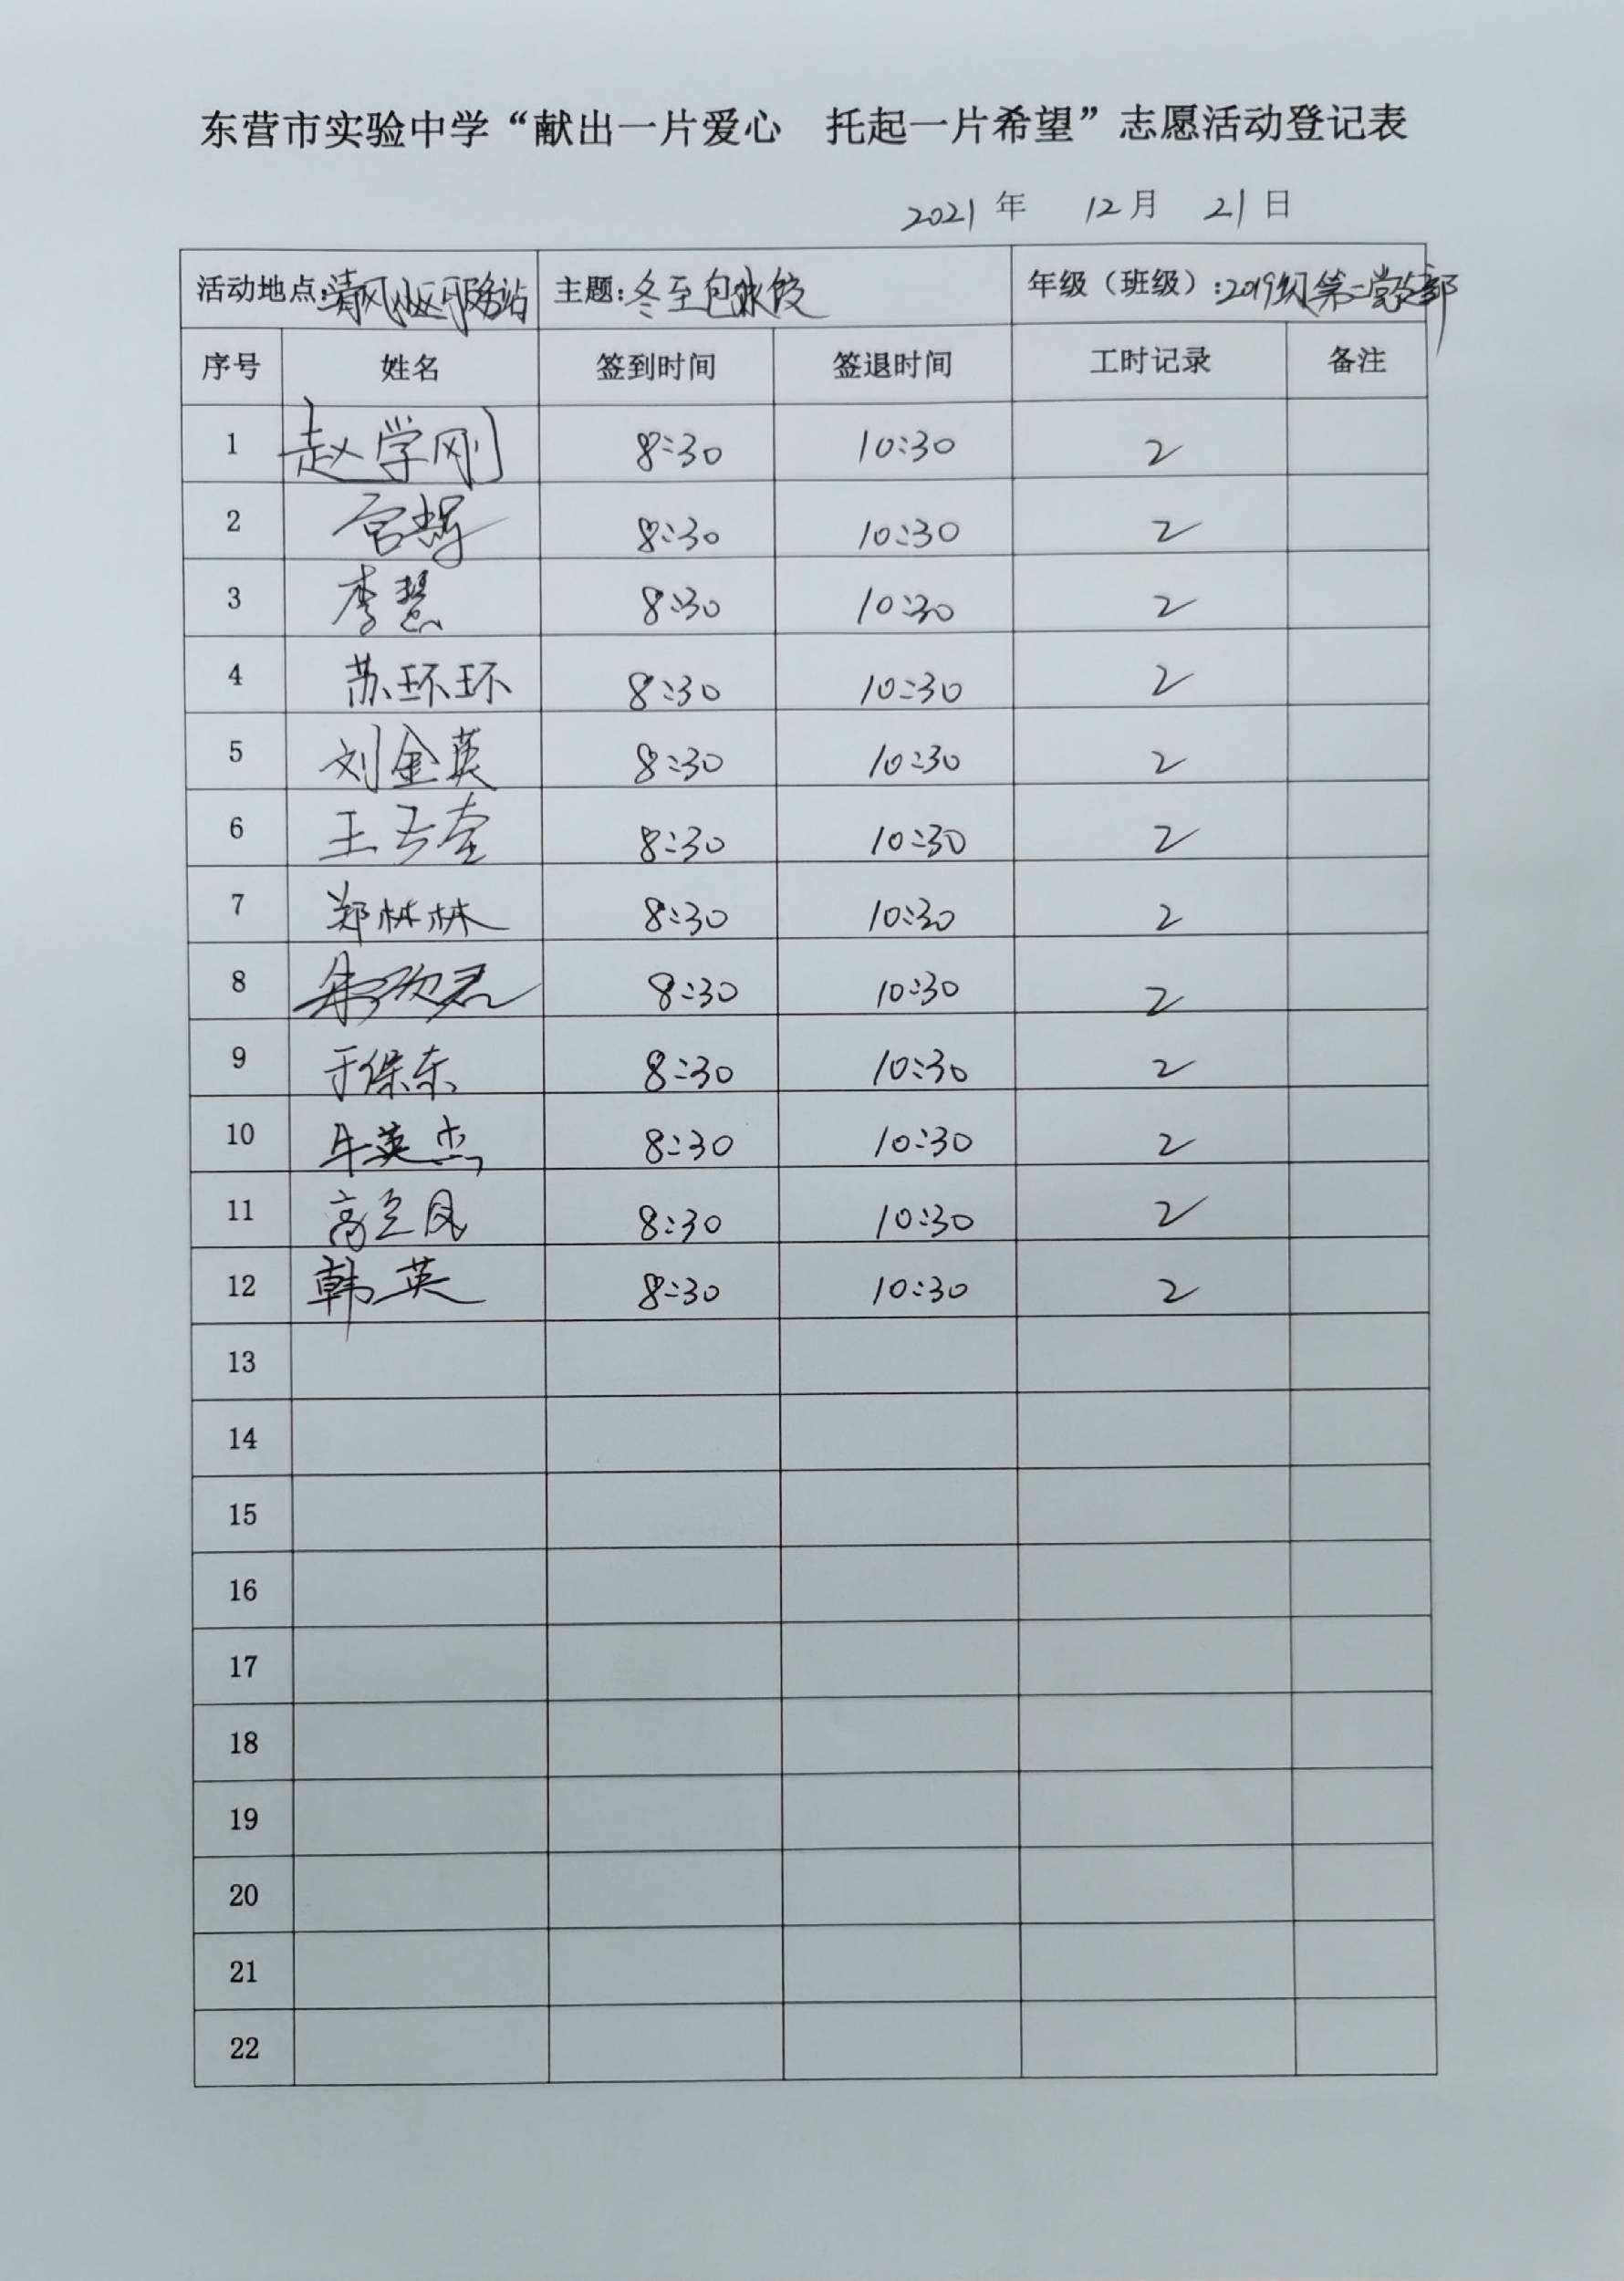 东营市实验中学“献出一片爱心 托起一片希望”志愿活动登记表
2021年 12月 21日
活动地点:清风小区服务站 主题:冬至包水饺 年级（班级）:2019级第二党支部
序号 姓名 签到时间 签退时间 工时记录 备注
1 赵学刚 8:30 10:30 2
2 宫辉 8:30 10:30 2
3 李慧 8:30 10:30 2
4 苏环环 8:30 10:30 2
5 刘金英 8:30 10:30 2
6 王 8:30 10:30 2
7 郑林林 8:30 10:30 2
8 8:30 10:30 2
9 于保东 8:30 10:30 2
10 牛英杰 8:30 10:30 2
11 高立凤 8:30 10:30 2
12 韩英 8:30 10:30 2
13
14
15
16
17
18
19
20
21
22